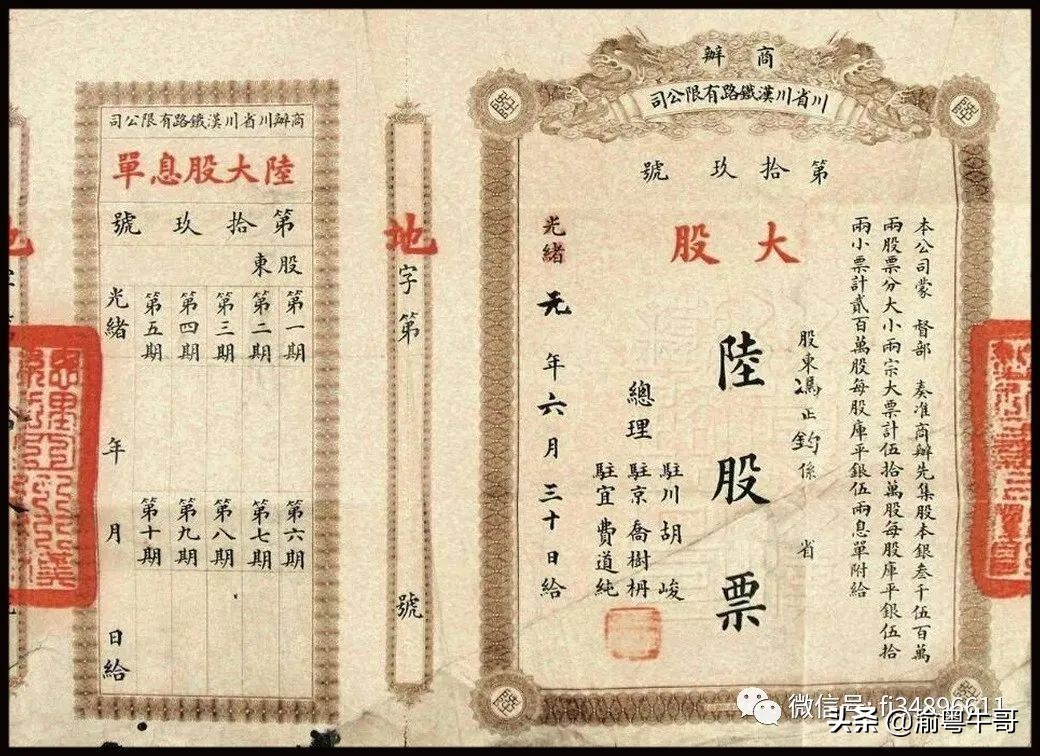 商辦
川省川漢鐵路有限公司
第拾玖號
大股
本公司蒙 督部 奏准商辦先集股本銀叁千伍百萬
兩股票分大小兩宗大票計伍拾萬股每股庫平銀伍拾
兩小票計貳百萬股每股庫平銀伍兩息單附給
股東馮正鈞係 省
陸股票
駐川胡峻
總理 駐京喬樹枏
駐宜費道純
光緒元年六月三十日給
地字第 號
商辦川省川漢鐵路有限公司
陸大股息單
第拾玖號
股東
第一期
第二期
第三期
第四期
第五期
第六期
第七期
第八期
第九期
第十期
光緒 年 月 日給
地
微信号: fj34896611
头条 @渝粤牛哥